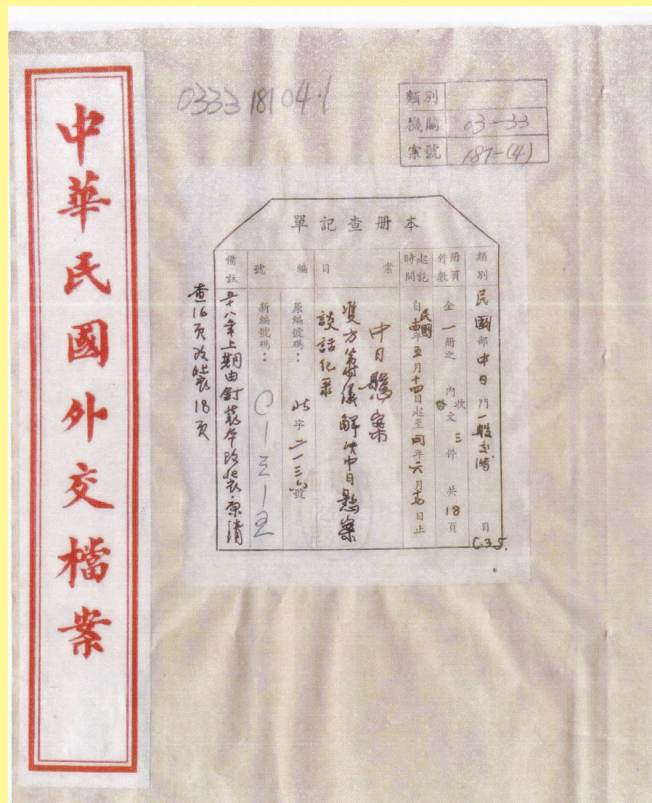 中華民國外交檔案
0333 181 04.1
類別
機關 03-33
案號 181-(4)
本冊查記單
類別 民國部中日門一般交涉目
C.35.
冊頁件數 全一冊之內收文三件共18頁
起訖時間 自民國 年五月十四日起至同年六月 日止
案目
中日懸案
雙方籌議解決中日懸案
談話紀錄
編號
原編號碼： 字二一三 號
新編號碼：
備註 年上期由釘裝本改裝原清
查16頁改裝18頁